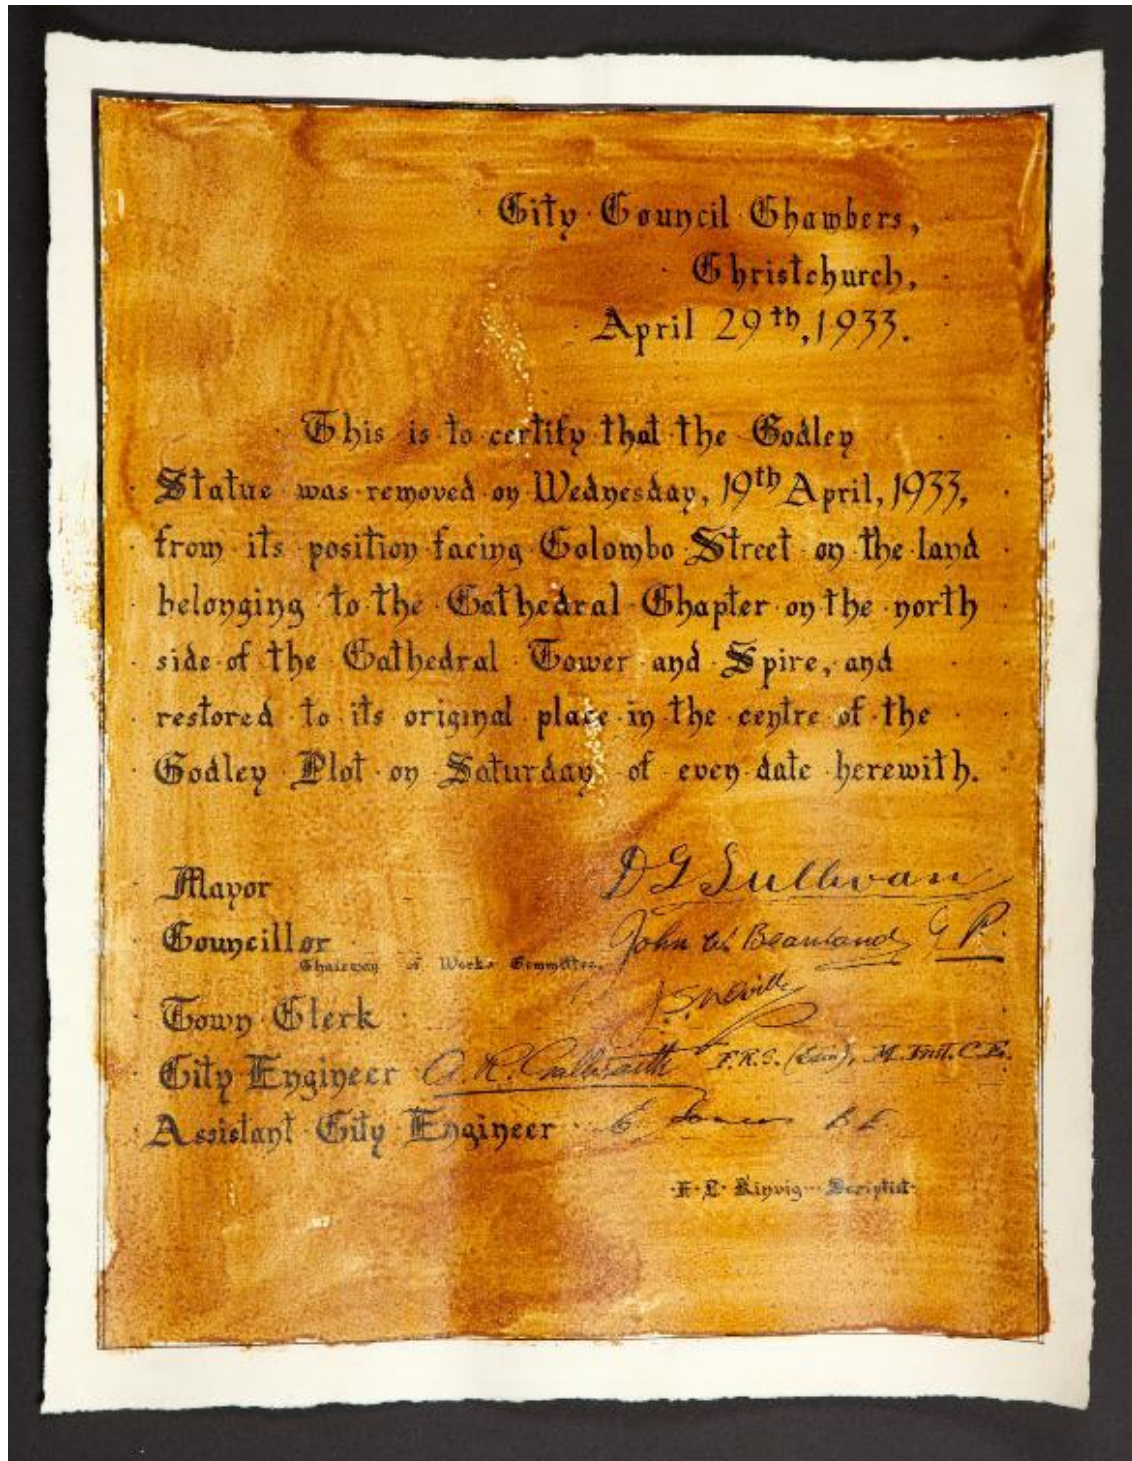 City Council Chambers,
Christchurch,
April 29th, 1933.
This is to certify that the Godley
Statue was removed on Wednesday, 19th April, 1933,
from its position facing Colombo Street on the land
belonging to the Cathedral Chapter on the north
side of the Cathedral Tower and Spire, and
restored to its original place in the centre of the
Godley Plot on Saturday of even date herewith.
Mayor D G Sullivan
Councillor John W. Beanland
Chairman of Works Committee.
Town Clerk J. S. Neville
City Engineer A. R. Galbraith F.R.S. (Edin), M. Inst. C. E.
Assistant City Engineer B E